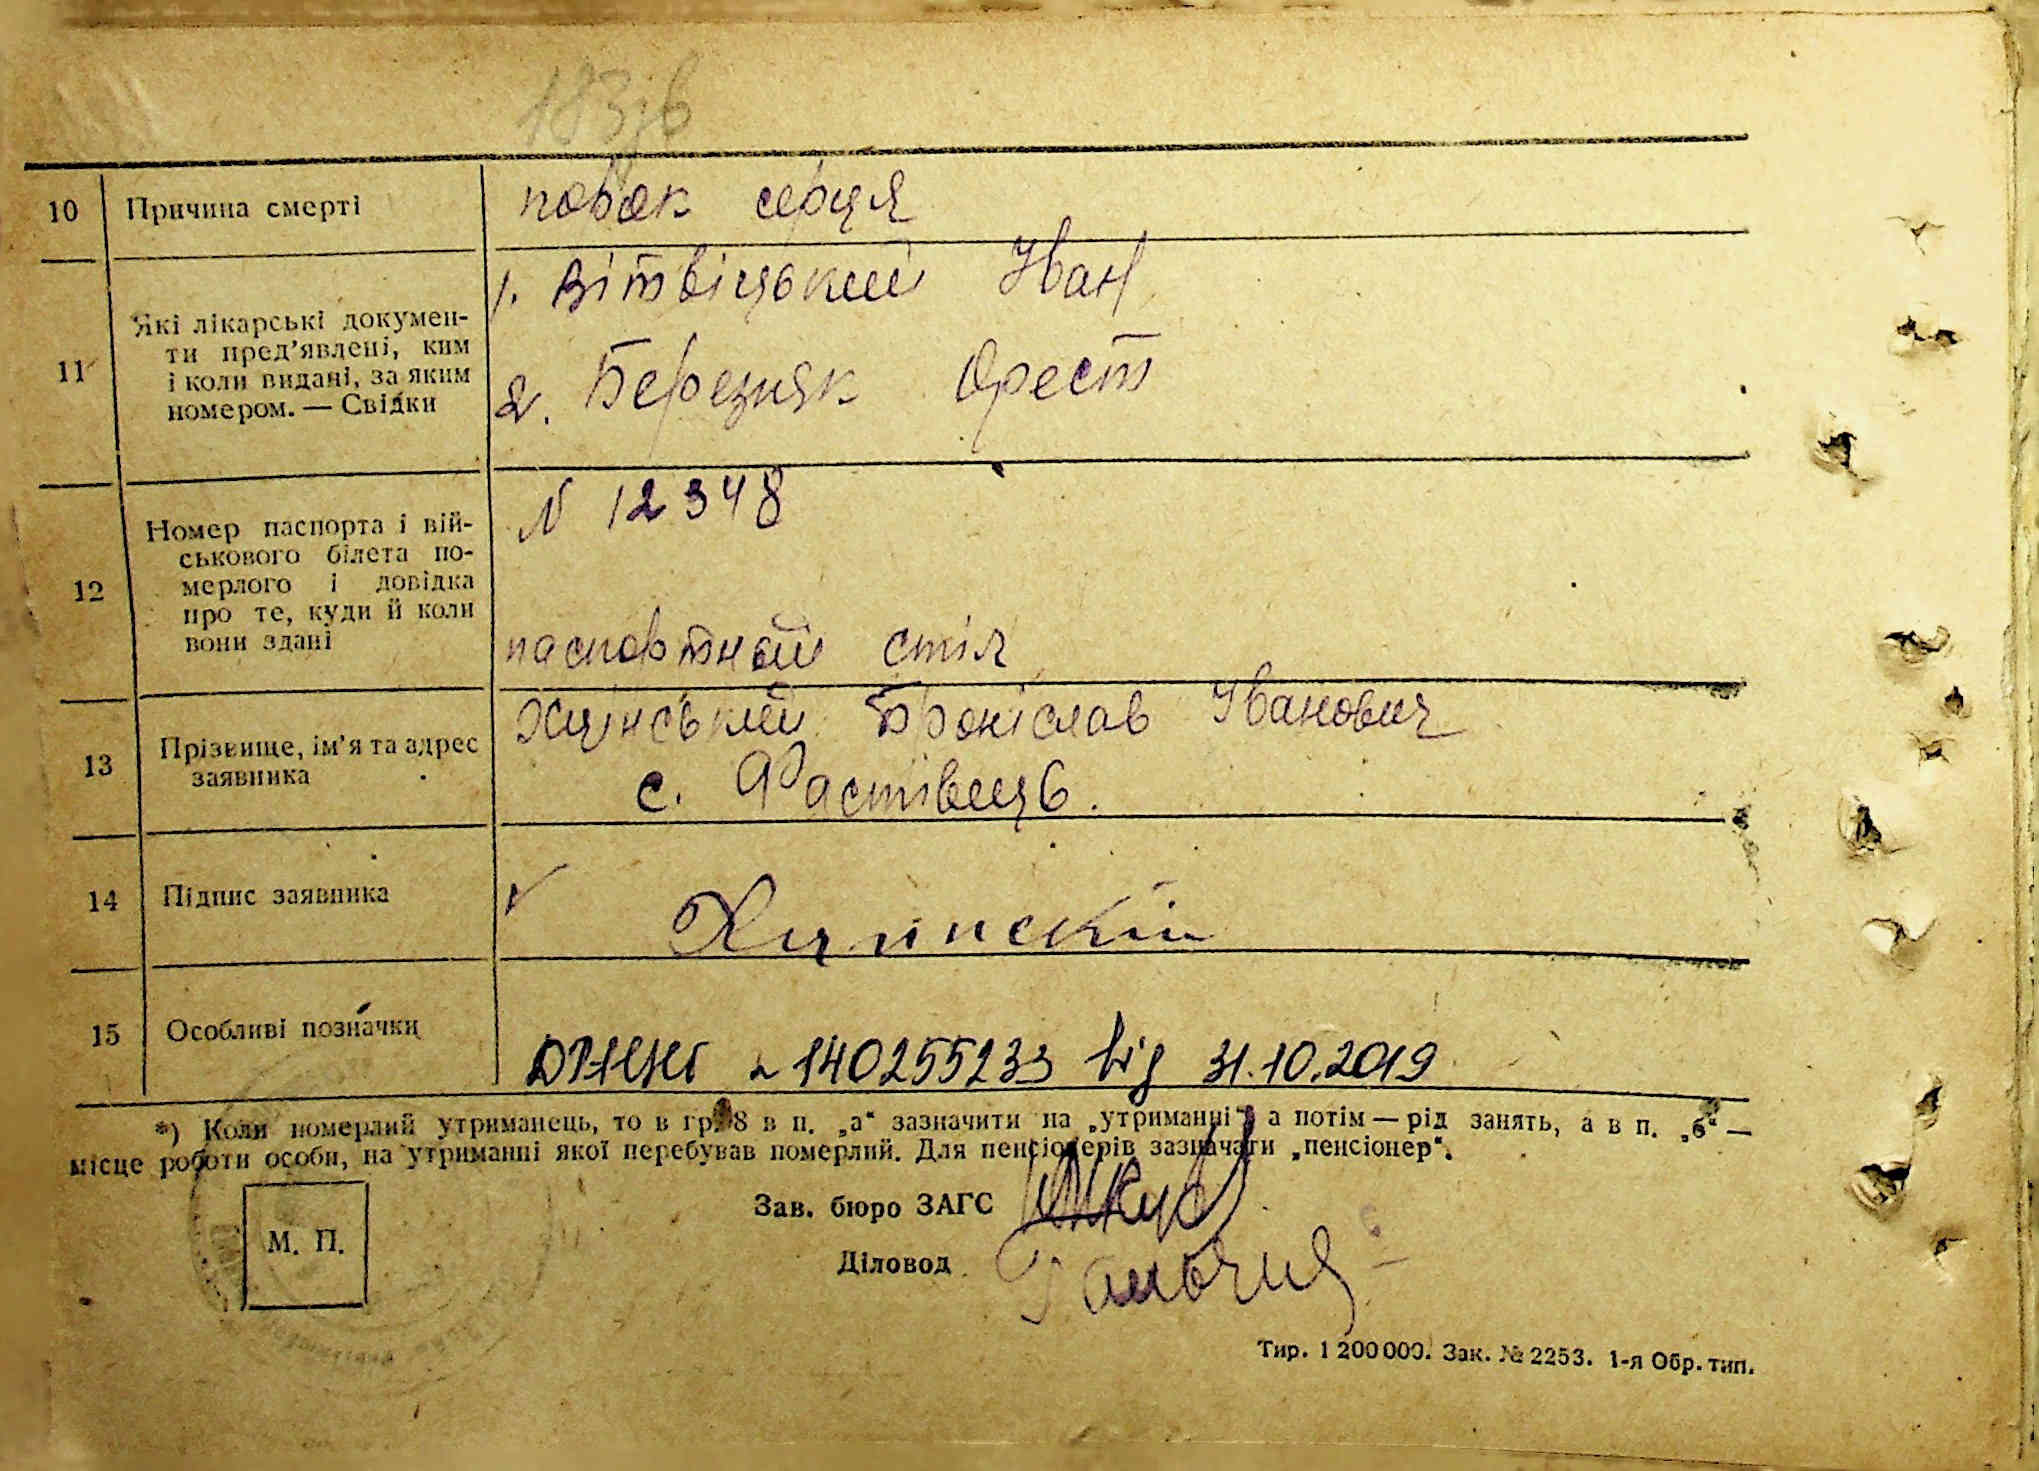 183/6
10 Причина смерті порок серця
11 Які лікарські докумен-
ти пред'явлені, ким
і коли видані, за яким
номером. — Свідки
1. Вітвіцький Іван
2. Березняк Орест
12 Номер паспорта і вій-
ськового білета по-
мерлого і довідка
про те, куди й коли
вони здані
N 12348
паспортний стіл
13 Прізвище, ім'я та адрес
заявника
Хцінський Броніслав Іванович
с. Фастівець.
14 Підпис заявника
15 Особливі позначки
140255233 від 31.10.2019
*) Коли померлий утриманець, то в гр. 8 в п. „а“ зазначити на „утриманні“, а потім — рід занять, а в п. „б“ —
місце роботи особи, на утриманні якої перебував померлий. Для пенсіонерів зазначати „пенсіонер“.
М. П.
Зав. бюро ЗАГС
Діловод
Тир. 1 200 000. Зак. № 2253. 1-я Обр. тип.